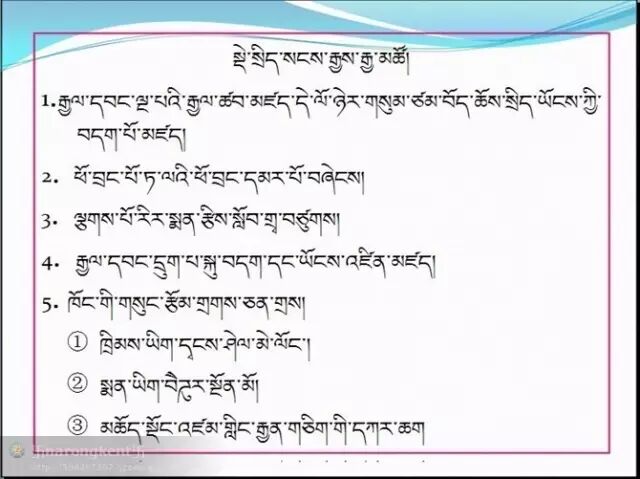 སྡེ་སྲིད་སངས་རྒྱས་རྒྱ་མཚོ།
1.རྒྱལ་དབང་ལྔ་པའི་རྒྱལ་ཚབ་མཛད་དེ་ལོ་ཉེར་གསུམ་ཙམ་བོད་ཆོས་སྲིད་ཡོངས་ཀྱི་
བདག་པོ་མཛད།
2. ཕོ་བྲང་པོ་ཏ་ལའི་ཕོ་བྲང་དམར་པོ་བཞེངས།
3. ལྕགས་པོ་རིར་སྨན་རྩིས་སློབ་གྲྭ་བཙུགས།
4. རྒྱལ་དབང་དྲུག་པ་སྐུ་བདག་དང་ཡོངས་འཛིན་མཛད།
5. ཁོང་གི་གསུང་རྩོམ་གྲགས་ཅན་གྲས།
① ཁྲིམས་ཡིག་དྭངས་ཤེལ་མེ་ལོང་།
② སྨན་ཡིག་བཻཌཱུར་སྔོན་མོ།
③ མཆོད་སྡོང་འཛམ་གླིང་རྒྱན་གཅིག་གི་དཀར་ཆག